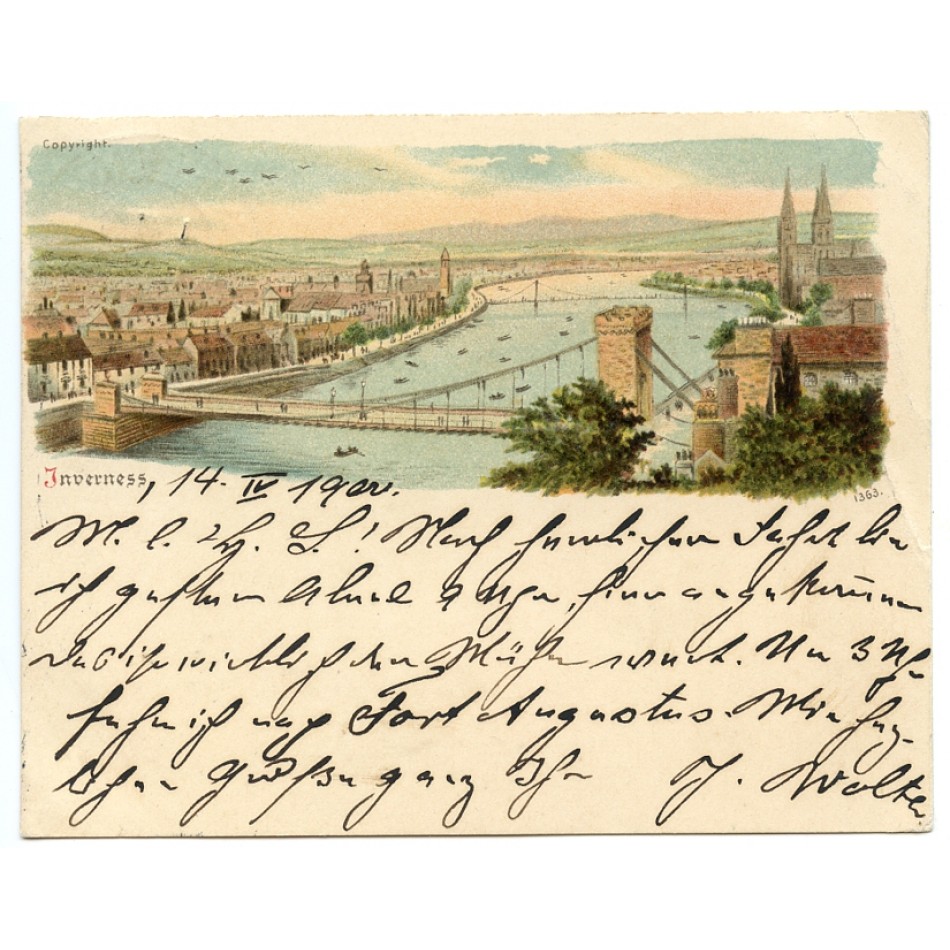 Copyright.
Inverness, 14. IV 1900.
1363.
M. l. H. L.! Nach herrlicher Fahrt bin
ich gestern Abend 9 Uhr hier angekommen
das ist wirklich der Mühe wert. Um 3 Uhr
fahre ich nach Fort Augustus. Mit herz-
lichen Grüßen ganz Ihr J. Wolter